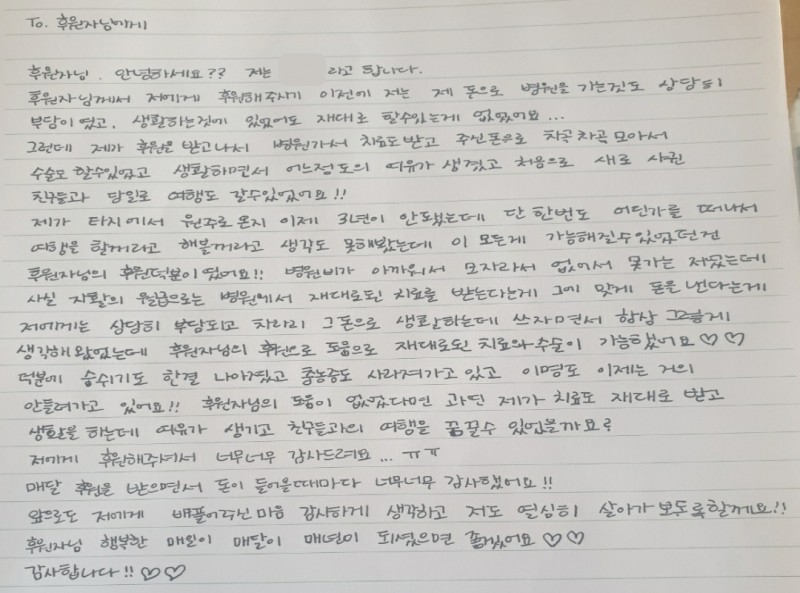 To. 후원자님에게
후원자님. 안녕하세요?? 저는 라고 합니다.
후원자님께서 저에게 후원해주시기 이전에 저는 제 돈으로 병원을 가는것도 상당히
부담이 였고. 생활하는것에 있었어도 재대로 할수있는게 없었어요...
그런데 제가 후원을 받고나서 병원가서 치료도 받고 주신돈으로 차곡차곡 모아서
수술도 할수있었고 생활하면서 어느정도의 여유가 생겼고 처음으로 새로 사귄
친구들과 당일로 여행도 갈수있었어요!!
제가 타지에서 원주로 온지 이제 3년이 안됐는데 단 한번도 어딘가를 떠나서
여행을 할꺼라고 해볼꺼라고 생각도 못해봤는데 이 모든게 가능해질수있었던건
후원자님의 후원덕분이 였어요!! 병원비가 아까워서 모자라서 없어서 못가는 저였는데
사실 자활의 월급으로는 병원에서 재대로된 치료를 받는다는게 그에 맞게 돈을 낸다는게
저에게는 상당히 부담되고 차라리 그돈으로 생활하는데 쓰자면서 항상 그렇게
생각해 왔었는데 후원자님의 후원으로 도움으로 재대로된 치료와 수술이 가능했어요 ♡♡
덕분에 숨쉬기도 한결 나아졌고 축농증도 사라져가고 있고 이명도 이제는 거의
안들려가고 있어요!! 후원자님의 도움이 없었다면 과연 제가 치료도 재대로 받고
생활을 하는데 여유가 생기고 친구들과의 여행을 꿈꿀수 있었을까요?
저에게 후원해주셔서 너무너무 감사드려요... ㅠㅠ
매달 후원을 받으면서 돈이 들어올때마다 너무너무 감사했어요!!
앞으로도 저에게 배풀어주신 마음 감사하게 생각하고 저도 열심히 살아가 보도록할께요!!
후원자님 행복한 매일이 매달이 매년이 되셨으면 좋겠어요 ♡♡
감사합니다!! ♡♡